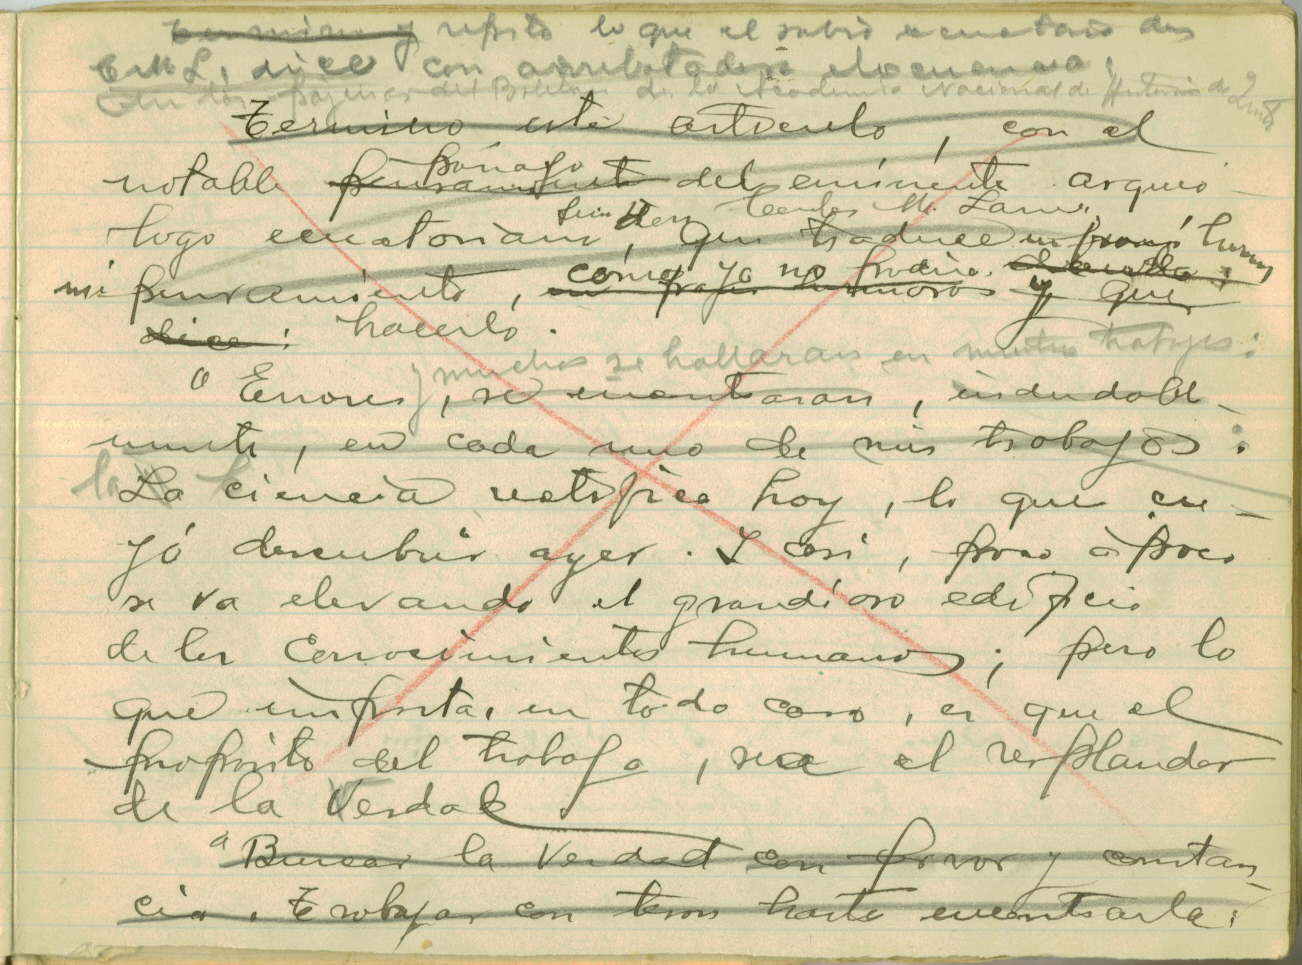 Termino y repito lo que el sabio ecuatoriano don
C. M. L, dice con arrebatadora elocuencia:
En las páginas del Boletin de la Academia Nacional de Historia de Quito
Termino este artículo, con el
notable pensamiento párrafo del eminente arqueó-
logo ecuatoriano, Señor Don Carlos M. Larrea, que traduce
mi pensamiento, como yo no podría en frases luminosas y que
dice: hacerlo.
y muchos se hallaran en nuestros trabajos:
"Errores, se encontraran, indudable-
mente, en cada uno de mis trabajos:
La ciencia rectifica hoy, lo que cre-
yó descubrir ayer. Y así, poco á poco
se va elevando el grandioso edificio
de los Conocimientos humanos; pero lo
que importa, en todo caso, es que el
propósito del trabajo, sea el resplandor
de la Verdad
"Buscar la Verdad con fervor y constan-
cia. Trabajar con teson hasta encontrarla: